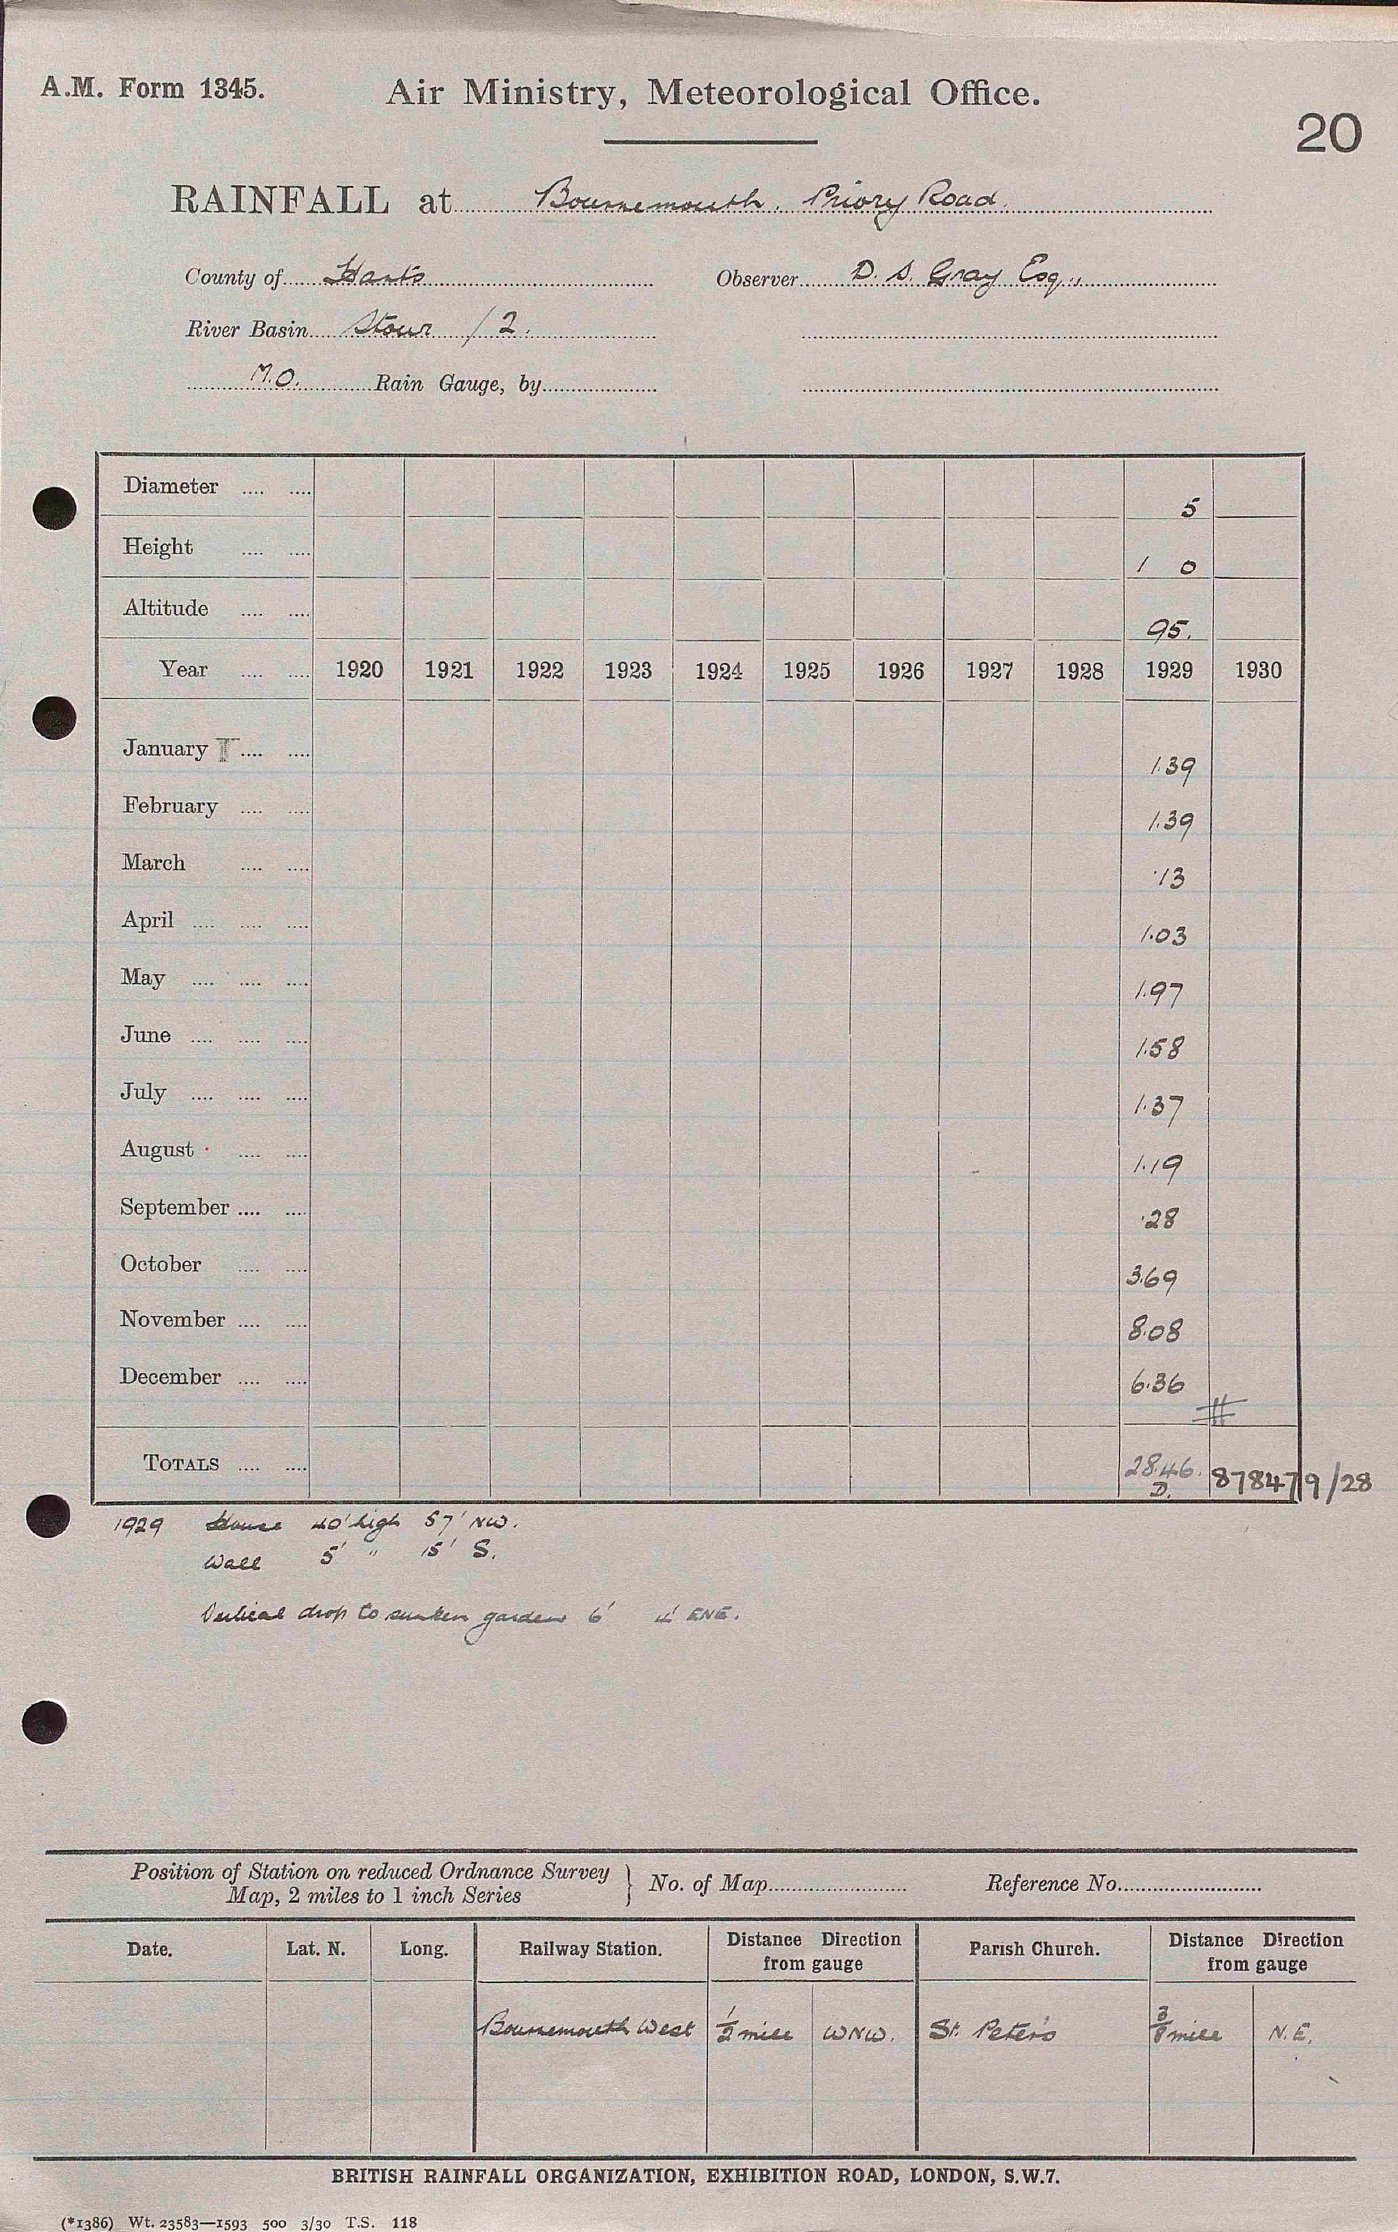 A.M. Form 1345.
Air Ministry, Meteorological Office.
20
RAINFALL at Bournemouth. Priory Road.
County of Hants Observer D. S. Gray Esq.,
River Basin Stour /2.
M.O. Rain Gauge, by
Diameter .... .... 5
Height .... .... 1 0
Altitude .... .... 95.
Year .... .... 1920 1921 1922 1923 1924 1925 1926 1927 1928 1929 1930
January .... .... 1.39
February .... .... 1.39
March .... .... .13
April .... .... .... 1.03
May .... .... .... 1.97
June .... .... .... 1.58
July .... .... .... 1.37
August .... .... 1.19
September .... .... .28
October .... .... 3.69
November .... .... 8.08
December .... .... 6.36
TOTALS .... .... 28.46. 878479/28
D.
1929 House 40' high 57' NW.
Wall 5' " 15' S.
Vertical drop to sunken garden 6' 4' ENE.
Position of Station on reduced Ordnance Survey
Map, 2 miles to 1 inch Series } No. of Map Reference No.
Date. Lat. N. Long. Railway Station. Distance Direction from gauge Parish Church. Distance Direction from gauge
Bournemouth West 1/2 mile WNW. St. Peter's 3/8 mile N.E.
BRITISH RAINFALL ORGANIZATION, EXHIBITION ROAD, LONDON, S.W.7.
(*1386) Wt. 23583—1593 500 3/30 T.S. 118